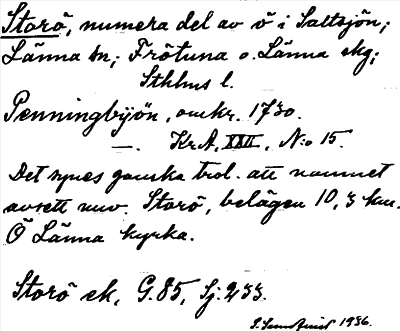 Storö, numera del av ö i Saltsjön;
Länna sn; Frötuna o. Länna skg;
Sthlms l.
Penningbyön, omkr. 1730.
—. KrA, XXII, N:o 15.
Det synes ganska trol. att namnet
avsett nuv. Storö, belägen 10,3 km.
Ö Länna kyrka.
Storö ek, G.85, Sj:233.
S. Sundqvist 1936.